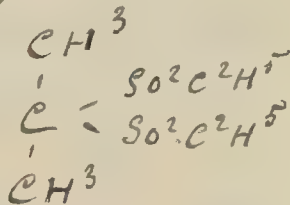 CH³
SO²C²H⁵
C
SO².C²H⁵
CH³